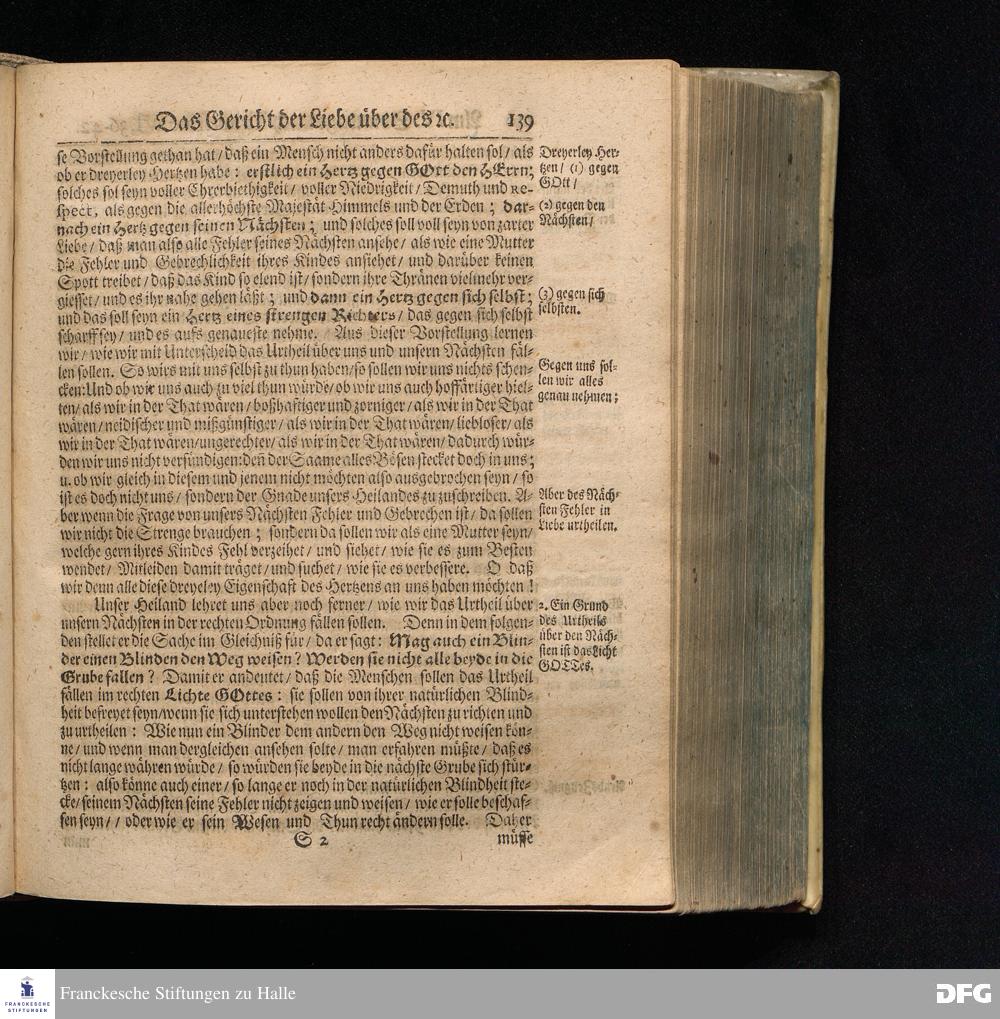 Das Gericht der Liebe über des ꝛc. 139
se Vorstellung gethan hat/ daß ein Mensch nicht anders dafür halten sol/ als
ob er dreyerley Hertzen habe: erstlich ein Hertz gegen GOtt den HErrn;
solches sol seyn voller Ehrerbiethigkeit/ voller Niedrigkeit/ Demuth und Re-
spect, als gegen die allerhöchste Majestät Himmels und der Erden; dar-
nach ein Hertz gegen seinen Nächsten; und solches soll voll seyn von zarter
Liebe/ daß man also alle Fehler seines Nächsten ansehe/ als wie eine Mutter
die Fehler und Gebrechlichkeit ihres Kindes ansiehet/ und darüber keinen
Spott treibet/ daß das Kind so elend ist/ sondern ihre Thränen vielmehr ver-
giesset/ und es ihr nahe gehen läßt; und dann ein Hertz gegen sich selbst;
und das soll seyn ein Hertz eines strengen Richters/ das gegen sich selbst
scharff sey/ und es aufs genaueste nehme. Aus dieser Vorstellung lernen
wir/ wie wir mit Unterscheid das Urtheil über uns und unsern Nächsten fäl-
len sollen. So wirs mit uns selbst zu thun haben/ so sollen wir uns nichts schen-
cken: Und ob wir uns auch zu viel thun würde/ ob wir uns auch hoffärtiger hiel-
ten/ als wir in der That wären/ boßhaftiger und zorniger/ als wir in der That
wären/ neidischer und mißgünstiger/ als wir in der That wären/ liebloser/ als
wir in der That wären/ ungerechter/ als wir in der That wären/ dadurch wür-
den wir uns nicht versündigen: deñ der Saame alles Bösen stecket doch in uns;
u. ob wir gleich in diesem und jenem nicht möchten also ausgebrochen seyn/ so
ist es doch nicht uns/ sondern der Gnade unsers Heilandes zu zuschreiben. A-
ber wenn die Frage von unsers Nächsten Fehler und Gebrechen ist/ da sollen
wir nicht die Strenge brauchen; sondern da sollen wir als eine Mutter seyn/
welche gern ihres Kindes Fehl verzeihet/ und siehet/ wie sie es zum Besten
wendet/ Mitleiden damit träget/ und suchet/ wie sie es verbessere. O daß
wir denn alle diese dreyeley Eigenschaft des Hertzens an uns haben möchten!
Unser Heiland lehret uns aber noch ferner/ wie wir das Urtheil über
unsern Nächsten in der rechten Ordnung fällen sollen. Denn in dem folgen-
den stellet er die Sache im Gleichniß für/ da er sagt: Mag auch ein Blin-
der einen Blinden den Weg weisen? Werden sie nicht alle beyde in die
Grube fallen? Damit er andeutet/ daß die Menschen sollen das Urtheil
fällen im rechten Lichte GOttes: sie sollen von ihrer natürlichen Blind-
heit befreyet seyn/ wenn sie sich unterstehen wollen den Nächsten zu richten und
zu urtheilen: Wie nun ein Blinder dem andern den Weg nicht weisen kön-
ne/ und wenn man dergleichen ansehen solte/ man erfahren müßte/ daß es
nicht lange währen würde/ so würden sie beyde in die nächste Grube sich stür-
tzen: also könne auch einer/ so lange er noch in der natürlichen Blindheit ste-
cke/ seinem Nächsten seine Fehler nicht zeigen und weisen/ wie er solle beschaf-
fen seyn// oder wie er sein Wesen und Thun recht ändern solle. Daher
S 2 müsse
Dreyerley Her-
tzen/ (1) gegen
GOtt/
(2) gegen den
Nächsten/
(3) gegen sich
selbsten.
Gegen uns sol-
len wir alles
genau nehmen;
Aber des Näch-
sten Fehler in
Liebe urtheilen.
2. Ein Grund
des Urtheils
über den Näch-
sten ist das Licht
GOTTes.
FRANCKESCHE
STIFTUNGEN
Franckesche Stiftungen zu Halle
DFG